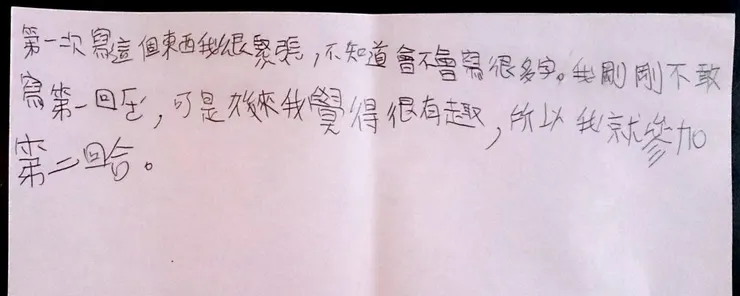 第一次寫這個東西我很緊張，不知道會不會寫很多字。我剛剛不敢
寫第一回合，可是後來我覺得很有趣，所以我就參加
第二回合。